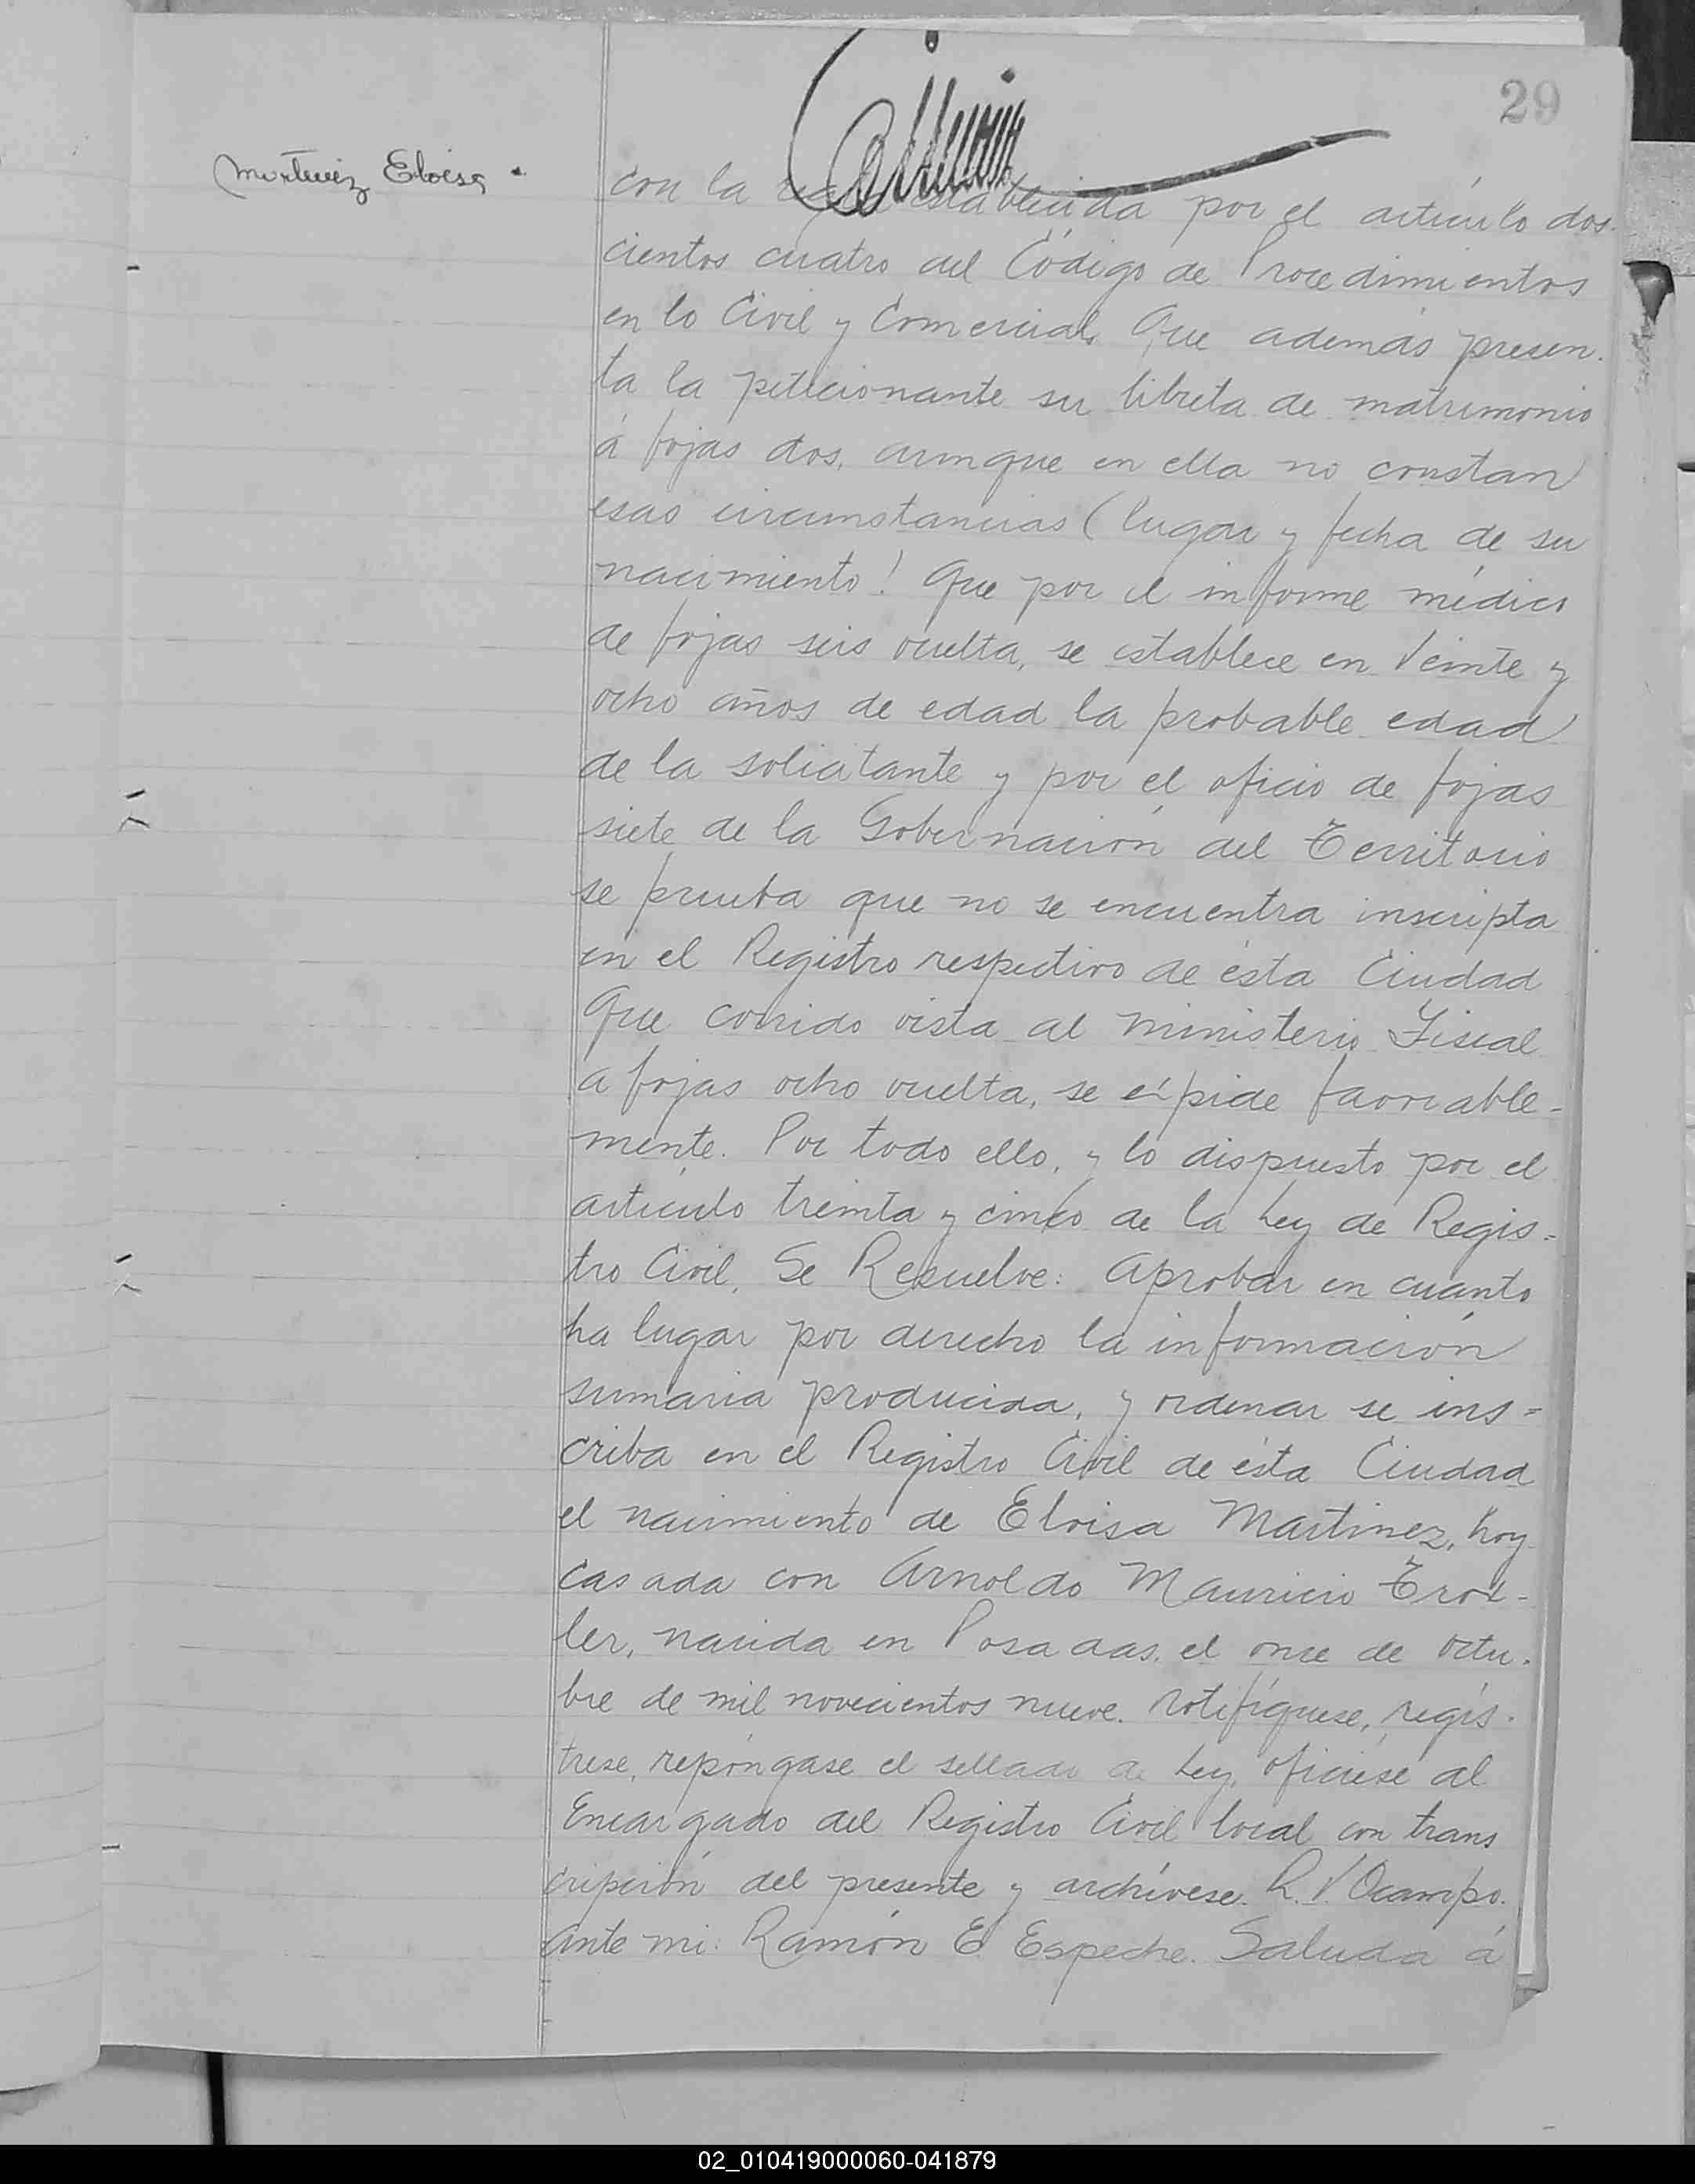 29
Martinez Eloisa
con la regla establecida por el artículo dos-
cientos cuatro del Código de Procedimientos
en lo Civil y Comercial. Que además presen-
ta la peticionante su libreta de matrimonio
á fojas dos, aunque en ella no constan
esas circumstancias (lugar y fecha de su
nacimiento! Que por el informe médico
de fojas seis vuelta, se establece en Veinte y
ocho años de edad la probable edad
de la solicitante y por el oficio de fojas
siete de la Gobernación del Territorio
se prueba que no se encuentra inscripta
en el Registro respectivo de ésta Ciudad
Que corrido vista al Ministerio Fiscal
a fojas ocho vuelta, se éxpide favorable-
mente. Por todo ello, y lo dispuesto por el
artículo treinta y cinco de la Ley de Regis-
tro Civil, Se Resuelve: Aprobar en cuanto
ha lugar por derecho la información
sumaria producida, y ordenar se ins=
criba en el Registro Civil de ésta Ciudad
el nacimiento de Eloisa Martinez, hoy
casada con Arnoldo Mauricio Trox-
ler, nacida en Posadas, el once de octu-
bre de mil novecientos nueve. Notifíquese, regís-
trese, repóngase el sellado de Ley, ofíciese al
Encargado del Registro Civil local con trans
cripción del presente y archívese. R. V. Ocampo.
Ante mi: Ramón E. Espeche. Saluda á
02_010419000060-041879